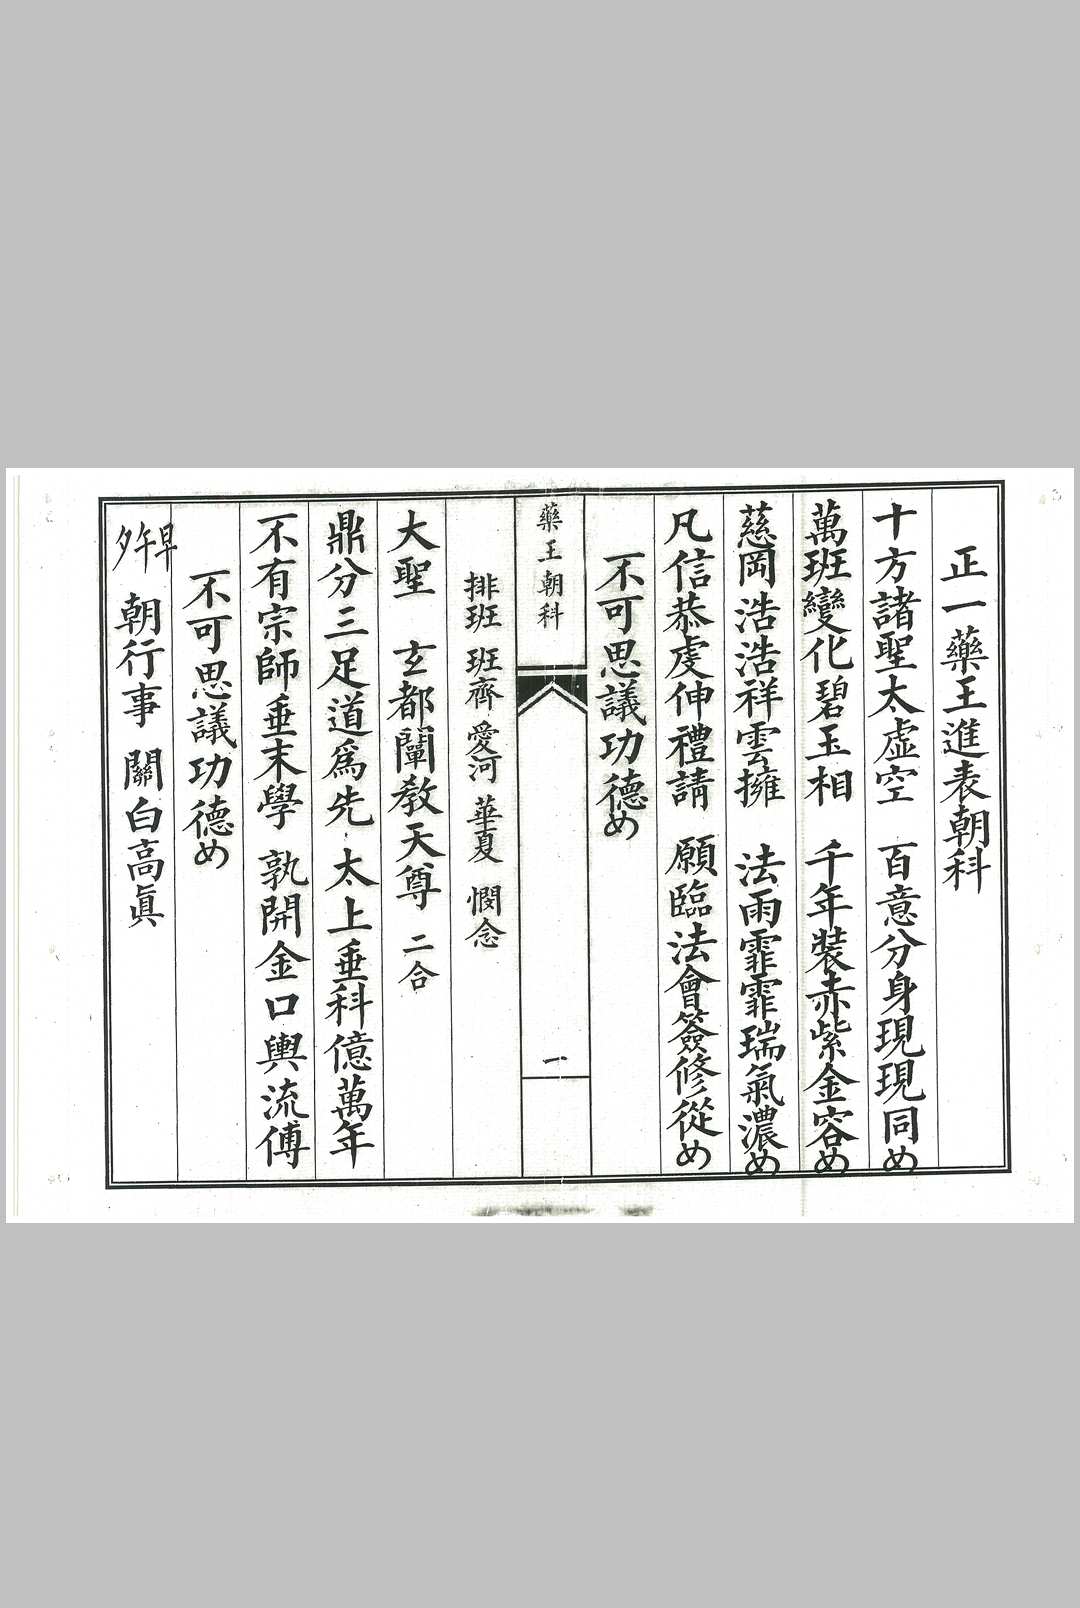 正一藥王進表朝科
十方諸聖太虛空　百意分身現現同め
萬班變化碧玉相　千年裝赤紫金容め
慈岡浩浩祥雲擁　法雨霏霏瑞氣濃め
凡信恭虔伸禮請　願臨法會簽修從め
不可思議功德め
藥王朝科　一
排班　班齊　愛河　華夏　憫念
大聖　玄都闡教天尊　二合
鼎分三足道為先　太上垂科億萬年
不有宗師垂末學　孰開金口輿流傅
不可思議功德め
早午夕　朝行事　關白高眞